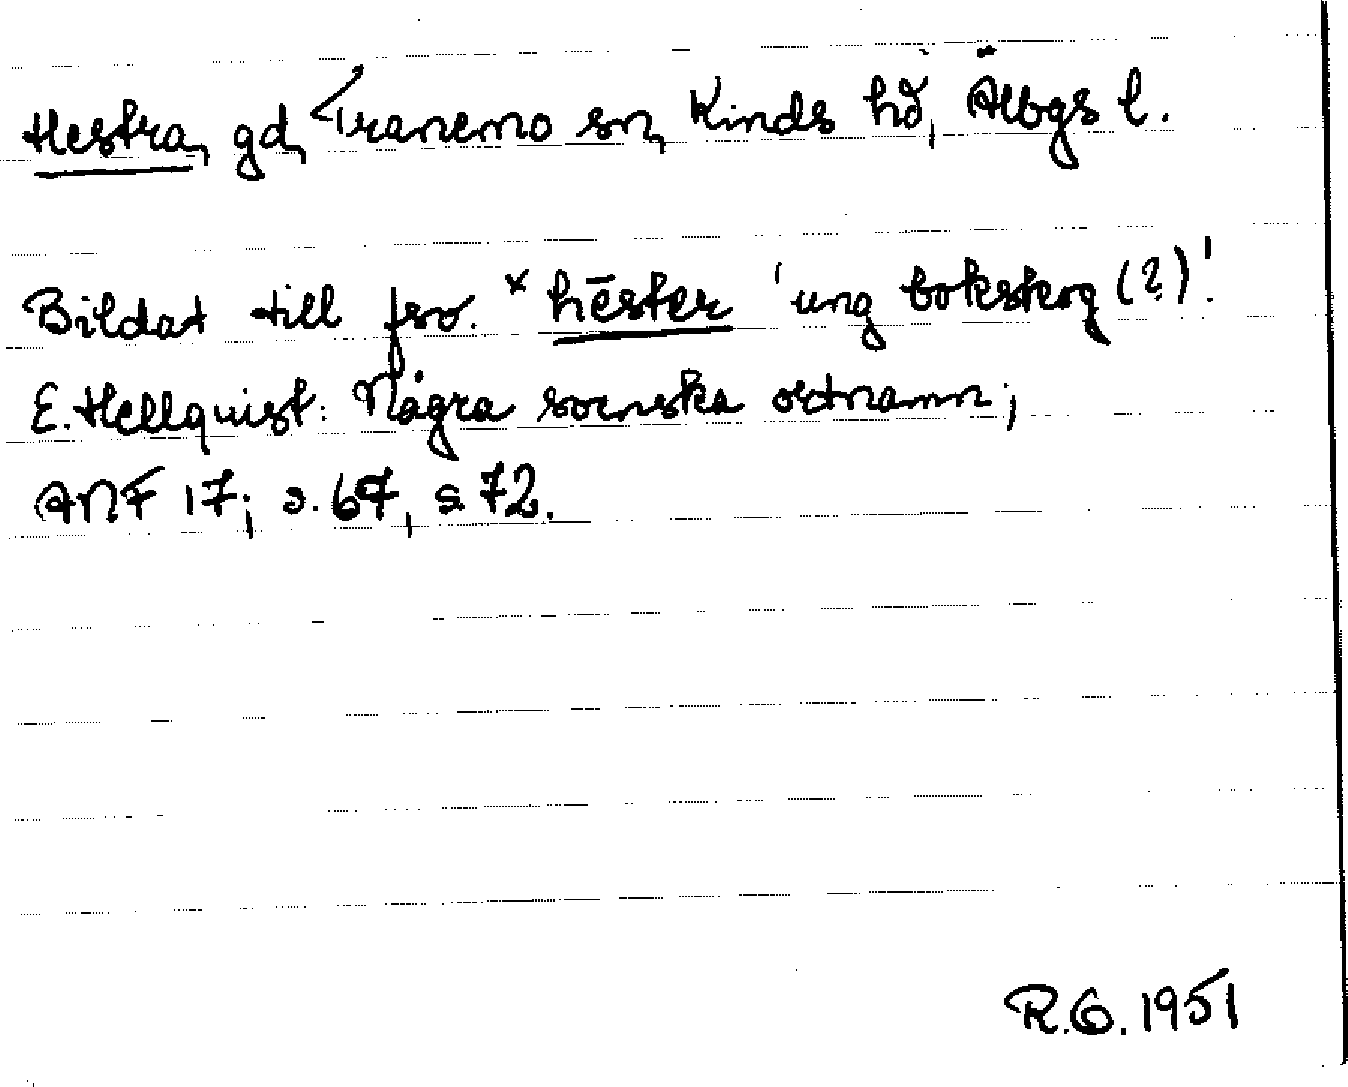 Hestra, gd, Tranemo sn, Kinds hd, Älvbgs l.
Bildat till fsv. *hēster 'ung bokskog (?)'.
E. Hellquist: Några svenska ortnamn;
ANF 17; s. 67, s 72.
R.G. 1951